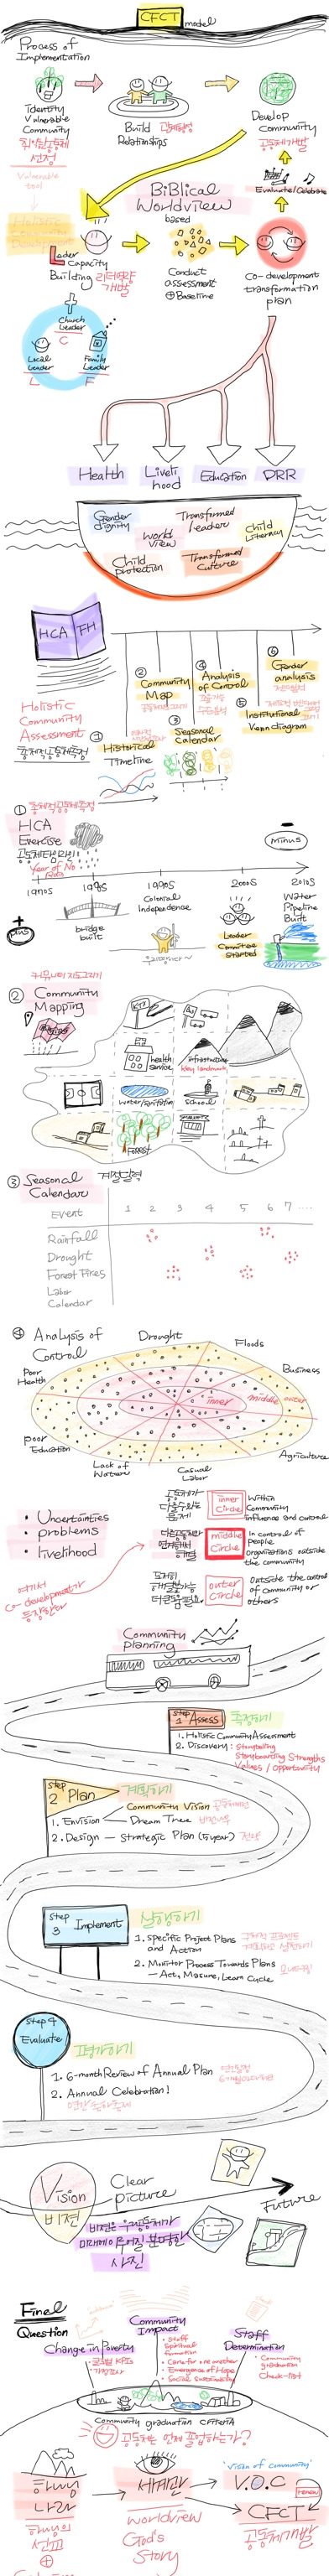 CFCT model
Process of
Implementation
Identity
Vulnerable
Community
취약한공동체
선정
Vulnerable
tool
Build
Relationships
관계형성
Develop
Community
공동체개발
Evaluate/Celebrate
Biblical
Worldview
based
Holistic
Leader
Capacity
Building 리더역량
개발
Conduct
assessment
⊕ Baseline
Co-development
transformation
plan
Church
leader
C
Local
leader
L
Family
leader
F
Health
Liveli
hood
Education
DRR
Gender
dignity
Transformed
leaders
World
View
Child
Literacy
Child
protection
Transformed
Culture
HCA FH
Holistic
Community
Assessment
총체적공동체측정
① Historical
Timeline
② Community
Map
③ Seasonal
Calendar
④ Analysis
of Control
⑤ Institutional
Venn diagram
⑥ Gender
analysis
① 총체적공동체측정
HCA
Exercise
Year of No
Rain
minus
plus
1970s
1980s
1990s
2000s
2010s
bridge
built
Colonial
Independence
Leader
Committee
Started
Water
Pipeline
Built
② 커뮤니티지도그리기
Community
Mapping
health
service
infrastructure
key landmark
water/sanitation
school
Forest
③ Seasonal
Calendar
계절달력
Event 1 2 3 4 5 6 7 ...
Rainfall
Drought
Forest Fires
Labor
Calendar
④ Analysis of
Control
Drought
Floods
Business
Agriculture
Casual
Labor
Lack of
Waters
Poor
Education
Poor
Health
inner middle outer
• Uncertainties
• problems
• livelihood
여기서
Co-development가
등장한다
inner
Circle
Within
Community
influence and control
middle
Circle
In control of
people
organizations outside
the community
outer
circle
Outside the control
of community or
others
Community
planning
Step
1 Assess
측정하기
1. Holistic Community Assessment
2. Discovery: Storytelling
Storyboarding Strengths
Values / Opportunity
Step
2 Plan
계획하기
1. Envision
Community Vision 공동체비전
Dream Tree 비전나무
2. Design — Strategic Plan (5 year) 전략
Step
3 Implement
실행하기
1. Specific Project Plans
and Action
2. Monitor Process Towards Plans
— Act, Measure, Learn Cycle
Step 4
Evaluate
평가하기
1. 6-month Review of Annual Plan
2. Annual Celebration!
Vision
비전
Clear
picture
Future
비전은 우리공동체가
미래에 이루어질 분명한
사진
Final
Question
Change in Poverty
Community
Impact
• Staff
Spiritual
formation
• Care for one another
• Emergence of Hope
• Social Sustainability
Staff
Determination
• Community
graduation
Check-list
Community graduation criteria
공동체는 언제 졸업하는가?
하나님
나라
하나님의
선교
⊕
세계관
Worldview
God's
Story
"Vision of community"
V.O.C
renew
CFCT
공동체개발